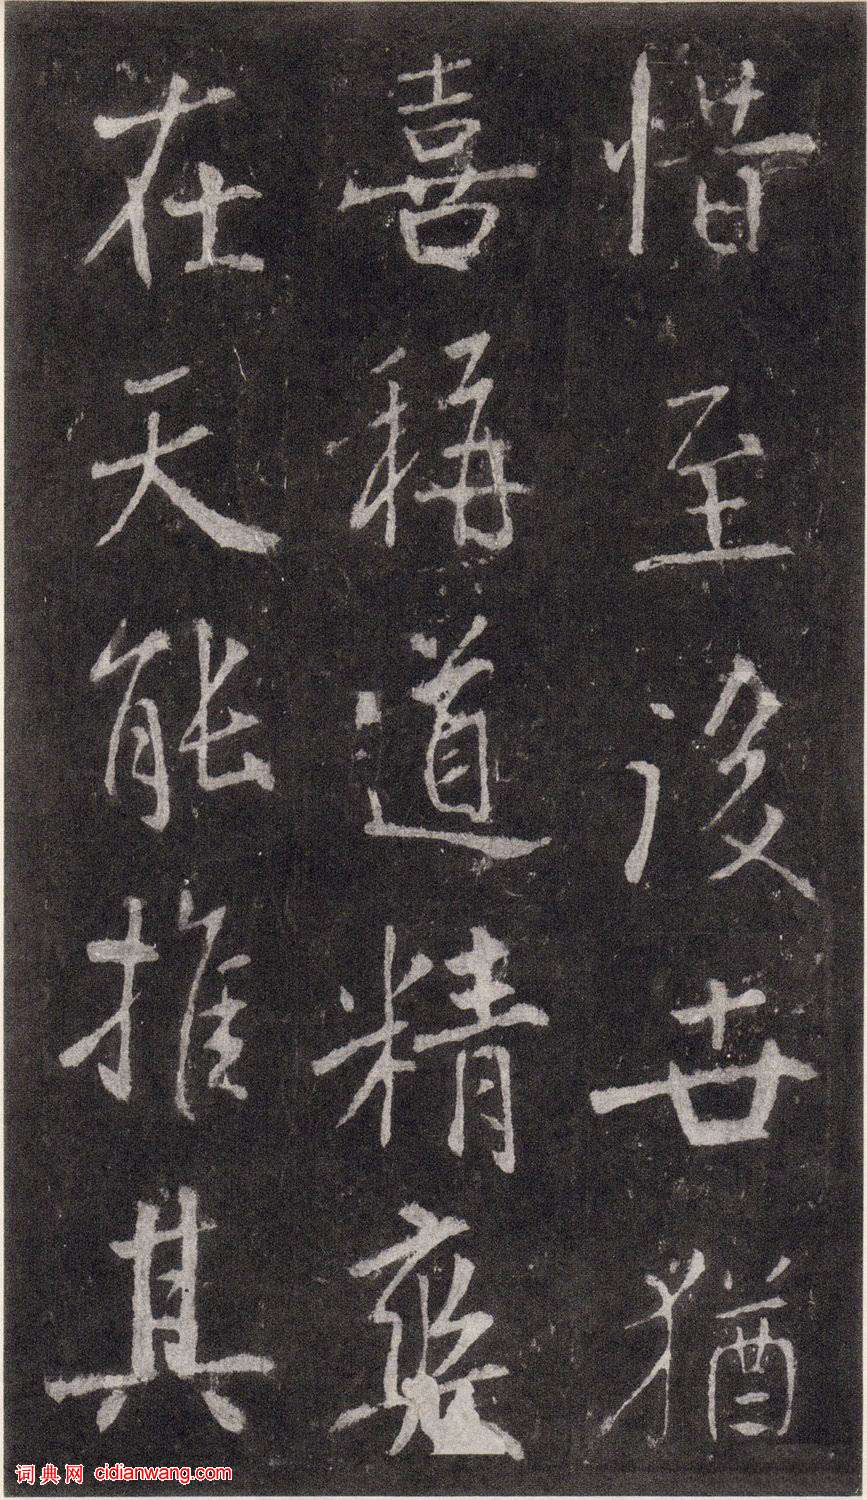 惜至後世猶
喜稱道精爽
在天能推其
词典网 cidianwang.com